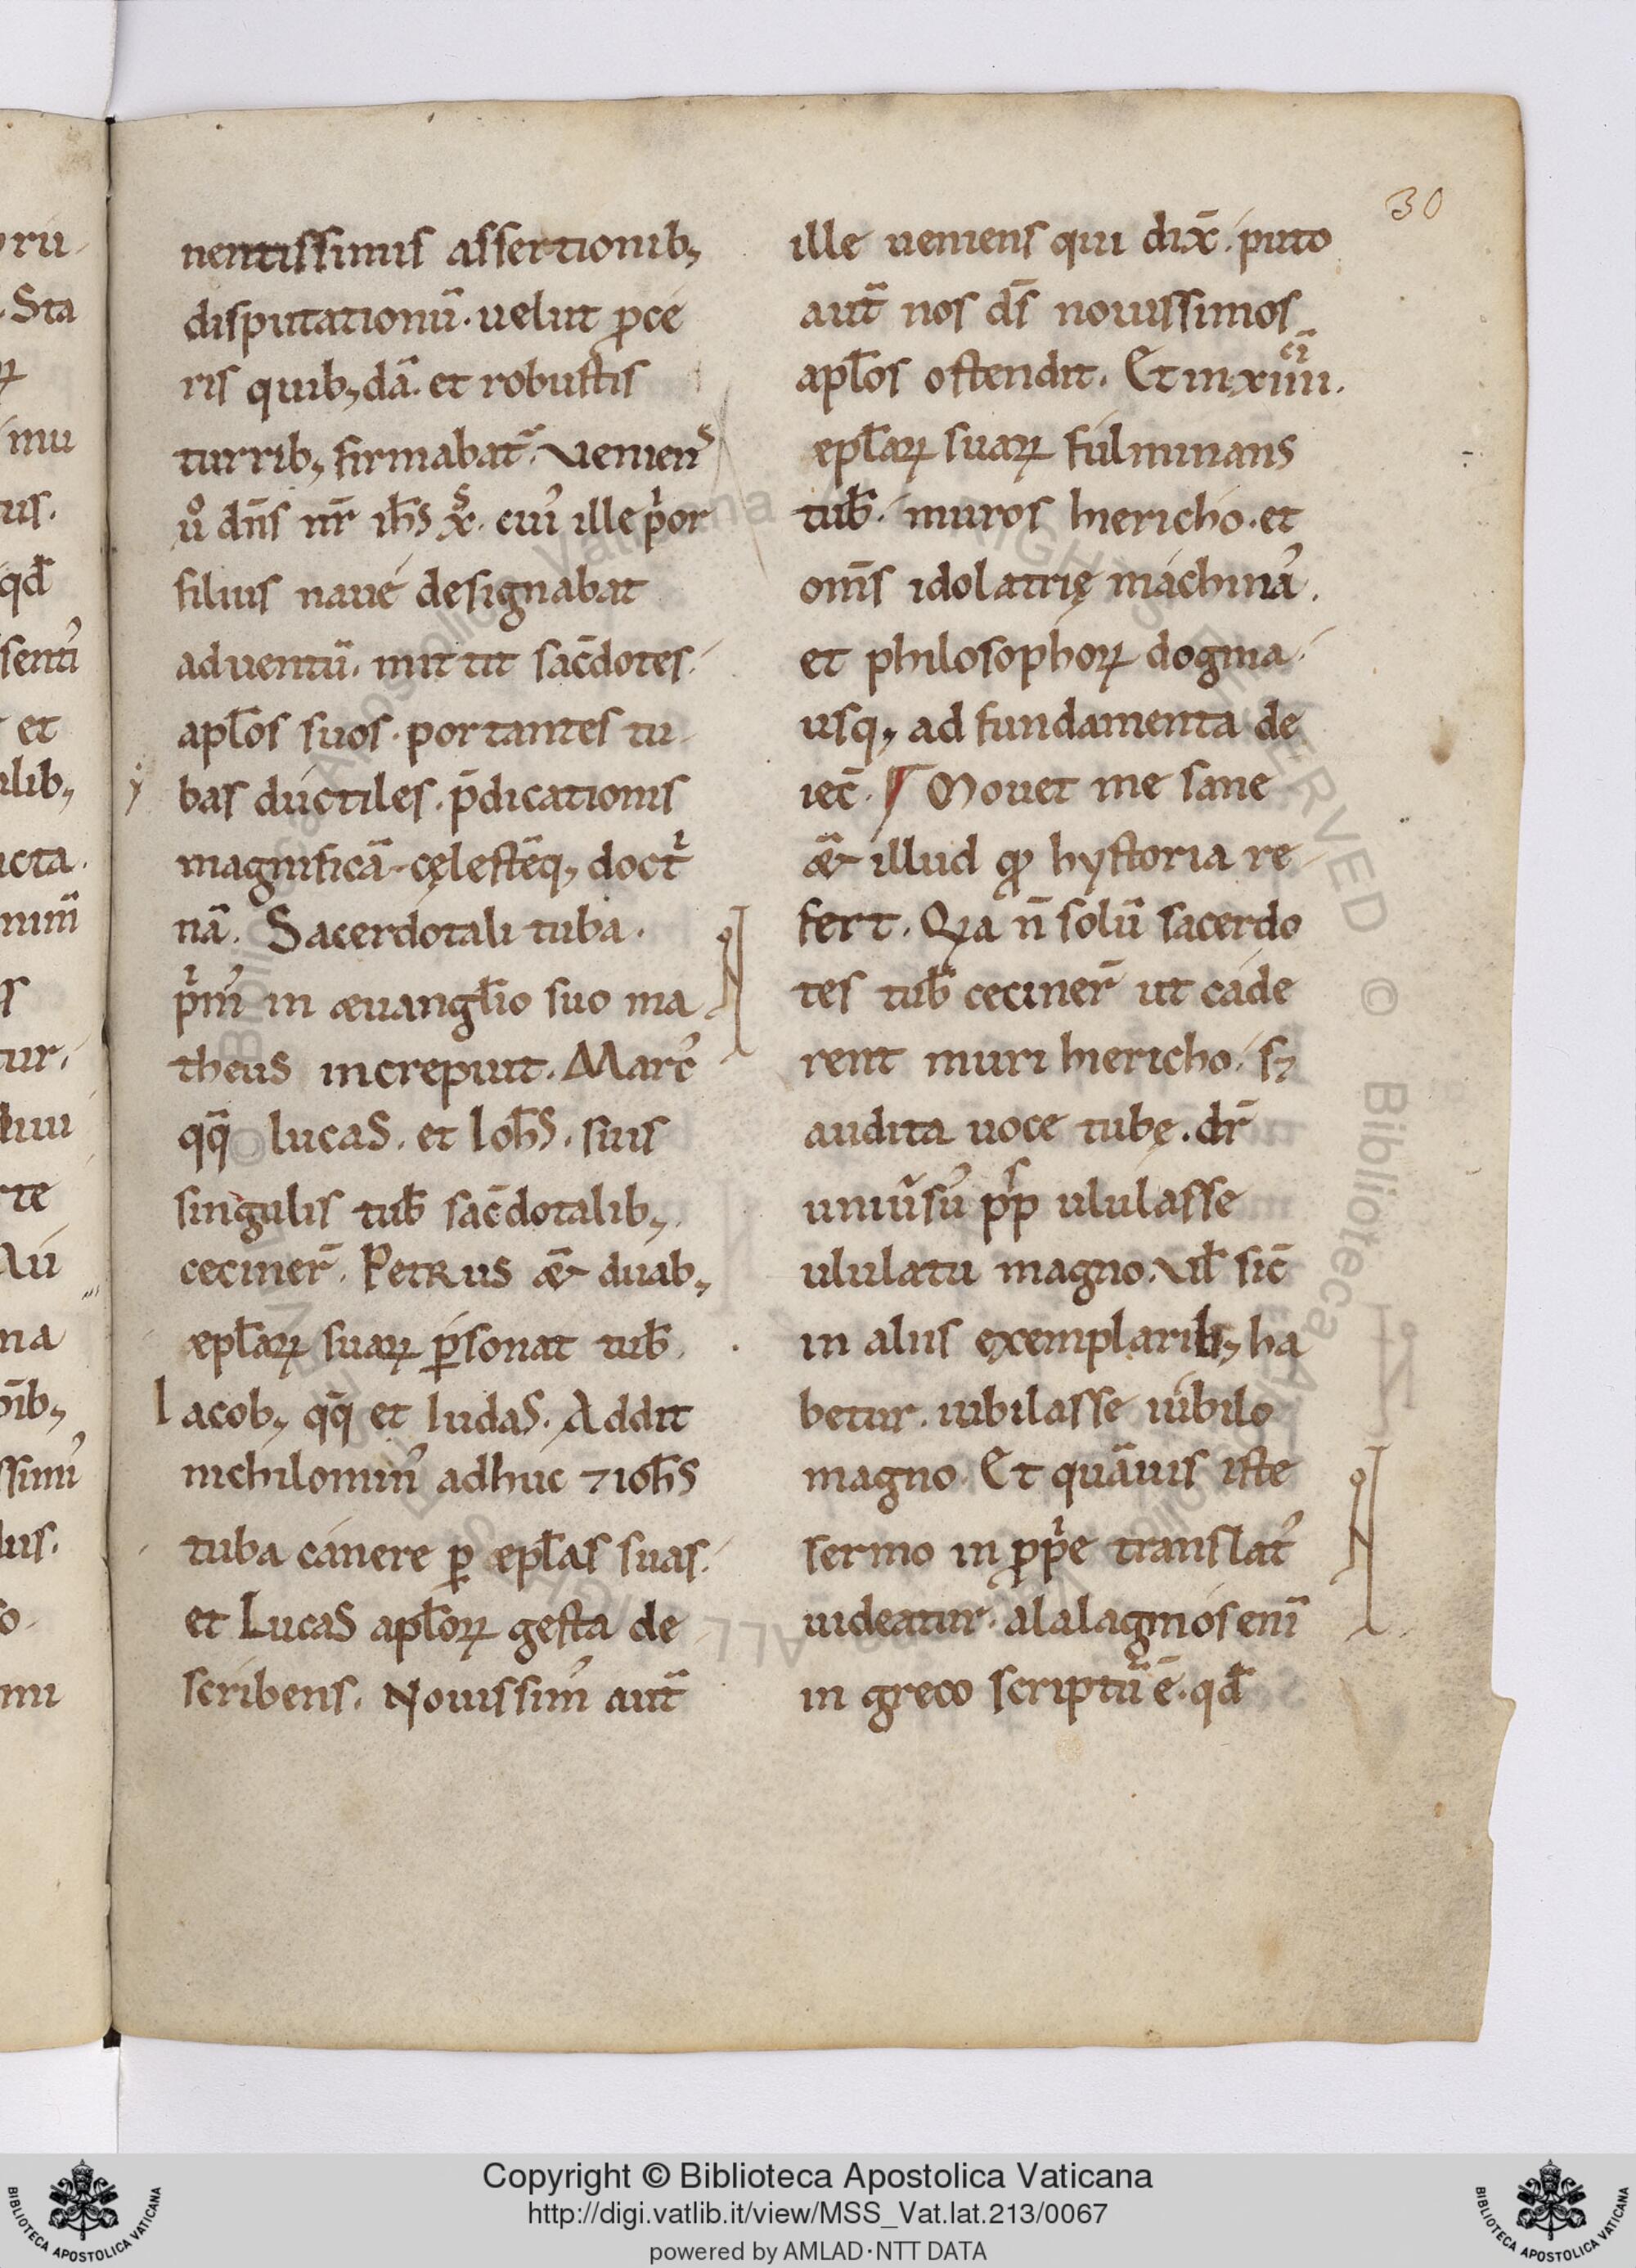 30
nentissimis assertionib;
disputationū. uelut ꝓce
ris quib;dā. et robustis
turrib; firmabat᷑. veniens
uͦ dn̄s nr̄ ih̄s xp̄s. cui᾽ ille pͥor
filius naue designabat
aduentū. mittit sac̄dotes.
apl̄os suos. portantes tu
bas ductiles. p̄dicationis
magnificā. cęlestēq; doctͥ
nā. Sacerdotali tuba.
pͥm᾽ in æuangl̄io suo ma
theus increpuit. Marc᾽
qq̄ lucas. et Ioh̄s. suis
singulis tub̄ sac̄dotalib;
ceciner̄. Petrus æ& duab;
æpl̄aꝝ suaꝝ p̱sonat tub̄.
Iacob; qq̄ et Iudas. Addit
nichilomin᾽ adhuc ⁊ ioh̄s
tuba canere ꝑ æpl̄as suas.
et Lucas apl̄oꝝ gesta de
scribens. Nouissim᾽ aut̄
ille ueniens qui dix̄. puto
aut̄ nos ds̄ nouissimos
apl̄os ostendit. Et in xiiii.
æpl̄aꝝ suaꝝ fulminans
tub̄. muros hiericho. et
om̄s idolatrię machina᾽.
et philosophoꝝ dogma
usq; ad fundamenta de
iec̄. Mouet me sane
æ& illud ꝙ hystoria re
fert. Qꝛa n̄ solū sacerdo
tes tub̄ ceciner̄ ut cade
rent muri hiericho. sꝫ
audita uoce tubę. dr̄
uniu̾su᾽ pp̄ ululasse
ululatu magno. vl̄ sic̄
in aliis exemplarib; ha
betur. iubilasse iubilo
magno. Et quāuis iste
sermo inꝓpͥe translat᾽
uideatur. alalagmos enī
in greco scriptū ē. qd̄
Copyright © Biblioteca Apostolica Vaticana
http://digi.vatlib.it/view/MSS_Vat.lat.213/0067
powered by AMLAD·NTT DATA
BIBLIOTECA APOSTOLICA VATICANA
BIBLIOTECA APOSTOLICA VATICANA